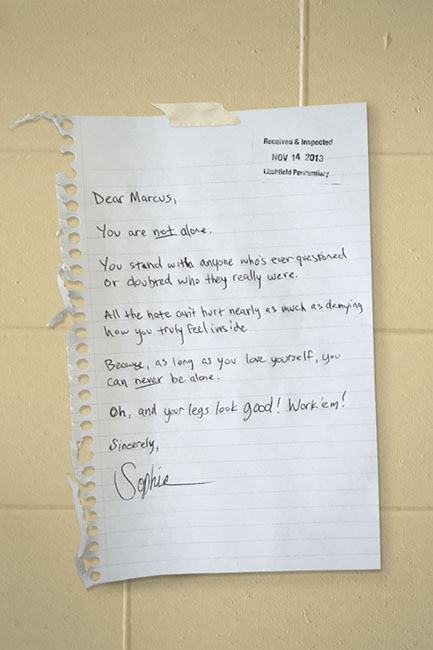 Received & Inspected
NOV 14 2013
Litchfield Penitentiary
Dear Marcus,
You are not alone.
You stand with anyone who's ever questioned
or doubted who they really were.
All the hate can't hurt nearly as much as denying
how you truly feel inside
Because, as long as you love yourself, you
can never be alone.
Oh, and your legs look good! Work'em!
Sincerely,
Sophia